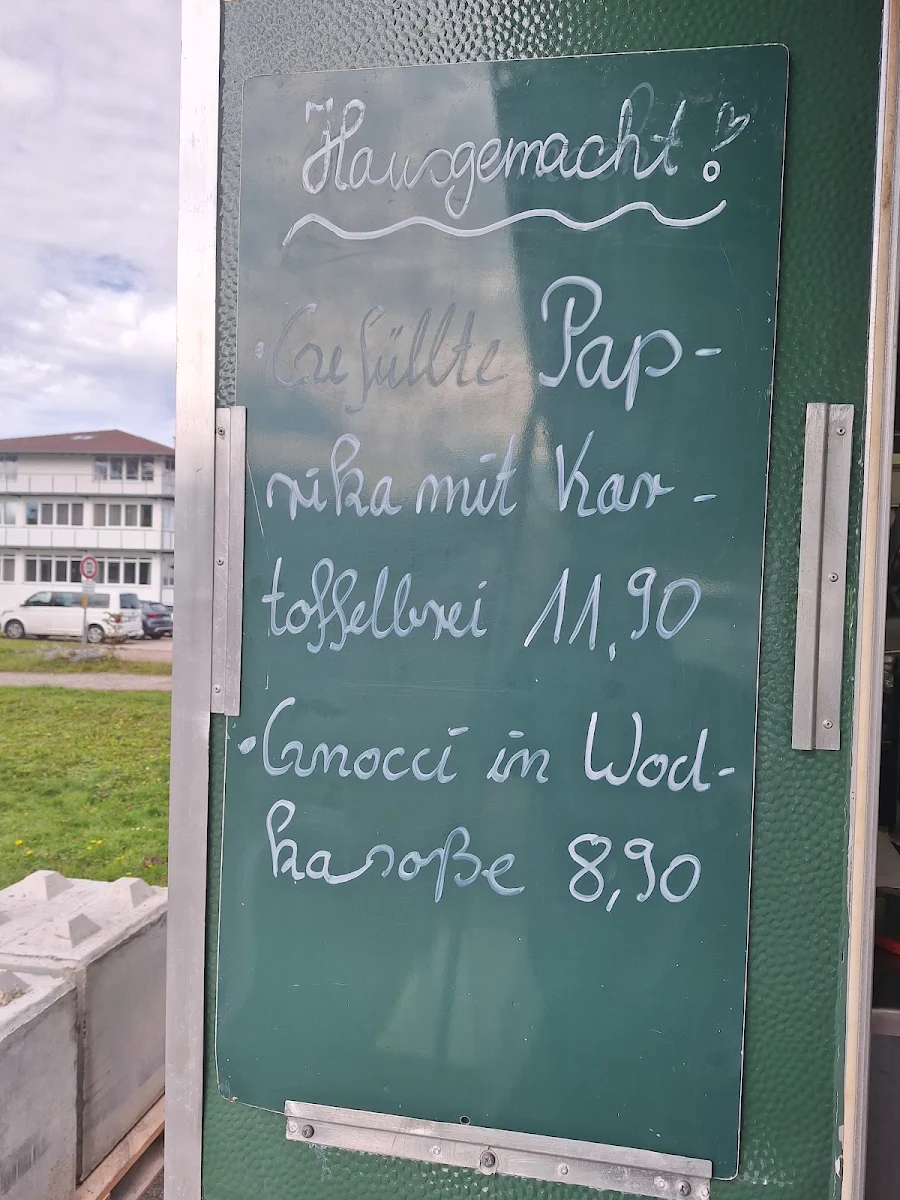 Hausgemacht!
· Gefüllte Pap-
rika mit Kar-
toffelbrei 11,90
· Gnocci in Wod-
kasoße 8,90